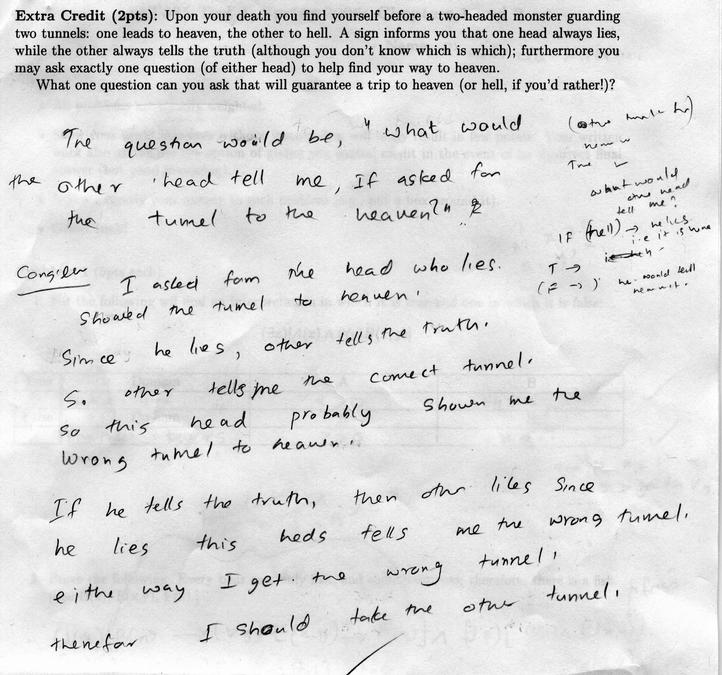 Extra Credit (2pts): Upon your death you find yourself before a two-headed monster guarding
two tunnels: one leads to heaven, the other to hell. A sign informs you that one head always lies,
while the other always tells the truth (although you don't know which is which); furthermore you
may ask exactly one question (of either head) to help find your way to heaven.
What one question can you ask that will guarantee a trip to heaven (or hell, if you'd rather!)?
The question would be, "what would
the other head tell me, If asked for
the tunnel to the heaven?"
what would
one head
tell me?
IF (hell) → he lies
i.e it is
T →
(F → ) he would tell
Consider I asked from the head who lies.
Showed the tunnel to heaven.
Since he lies, other tells the truth.
So other tells me the correct tunnel.
So this head probably shown me the
wrong tunnel to heaven.
If he tells the truth, then other lies Since
he lies this heds tells me the wrong tunnel.
eithe way I get the wrong tunnel.
therefor I should take the other tunnel.